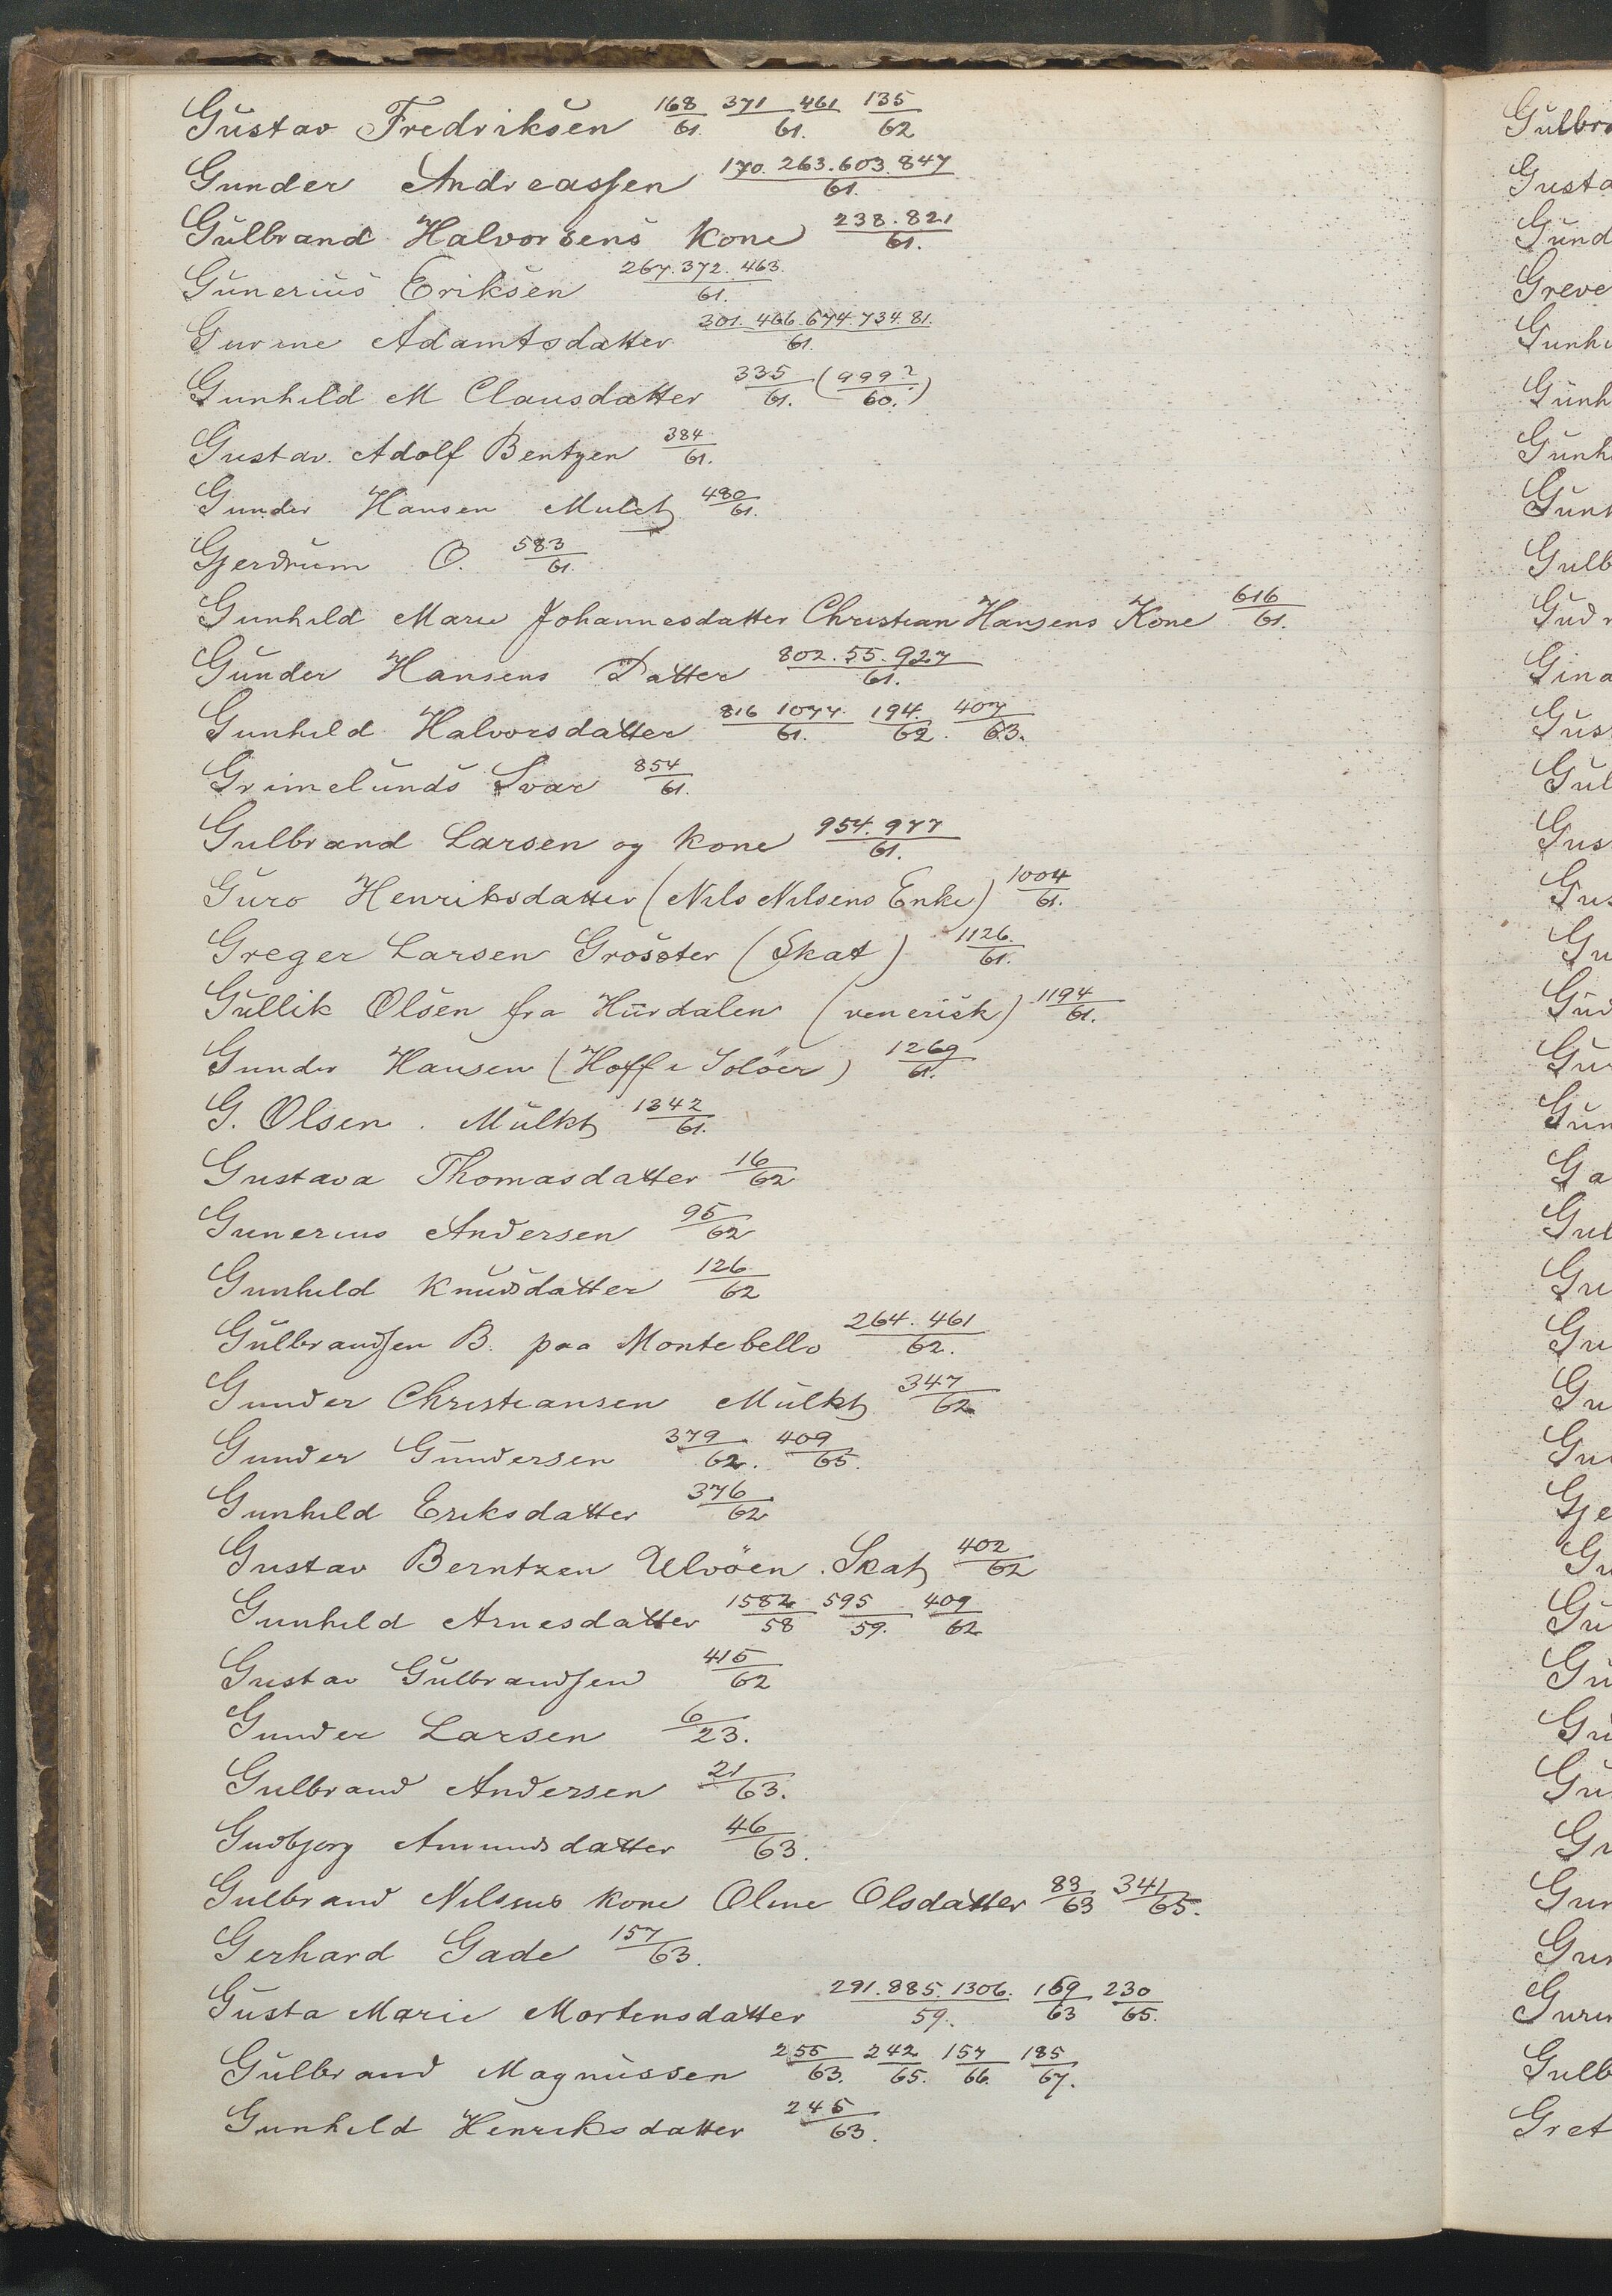 Gustav Fredriksen 168/61. 371 461/61. 135/62
Gunder Andreassen 170. 263. 603. 847/61.
Gulbrand Halvorsens Kone 238. 821/61.
Gunerius Eriksen 267. 372. 463./61.
Gurine Adamtsdatter 301. 466. 674. 734. 81./61.
Gunhild M Clausdatter 335/61. (999?/60.)
Gustav. Adolf Bentzen 384/61.
Gunder Hansen Mulct 480/61.
Gjerdrum O. 583/61.
Gunhild Marie Johannesdatter Christian Hansens Kone 616/61.
Gunder Hansens Datter 802. 55. 927/61.
Gunhild Halvorsdatter 816 1077./61. 194./62. 407/63.
Grimelunds Svar 854/61.
Gulbrand Larsen og Kone 954. 977/61.
Guro Henriksdatter (Nils Nilsens Enke) 1004/61.
Greger Larsen Groseter (Skat) 1126./61.
Gullik Olsen fra Hurdalen (venerisk) 1194/61.
Gunder Hansen (Hoff i Solöer) 1269/61.
G. Olsen. Mulkt 1342/61.
Gustava Thomasdatter 16/62
Gunerius Andersen 95/62
Gunhild Knudsdatter 126/62
Gulbrandsen B. paa Montebello 264. 461/62.
Gunder Christiansen Mulkt 347/62
Gunder Gundersen 379/62. 409/65.
Gunhild Eriksdatter 376/62
Gustav Berntzen Ulvöen. Skat 402/62
Gunhild Arnesdatter 1582/58 595/59. 409/62
Gustav Gulbrandsen 415/62
Gunder Larsen 6/23.
Gulbrand Andersen 21/63.
Gudbjorg Amundsdatter 46/63.
Gulbrand Nilsens Kone Oline Olsdatter 83/63 341/65.
Gerhard Gade 157/63.
Gusta Marie Mortensdatter 291. 885. 1306./59. 169/63 230/65.
Gulbrand Magnussen 255/63. 242/65. 157/66. 185/67.
Gunhild Henriksdatter 245/63.